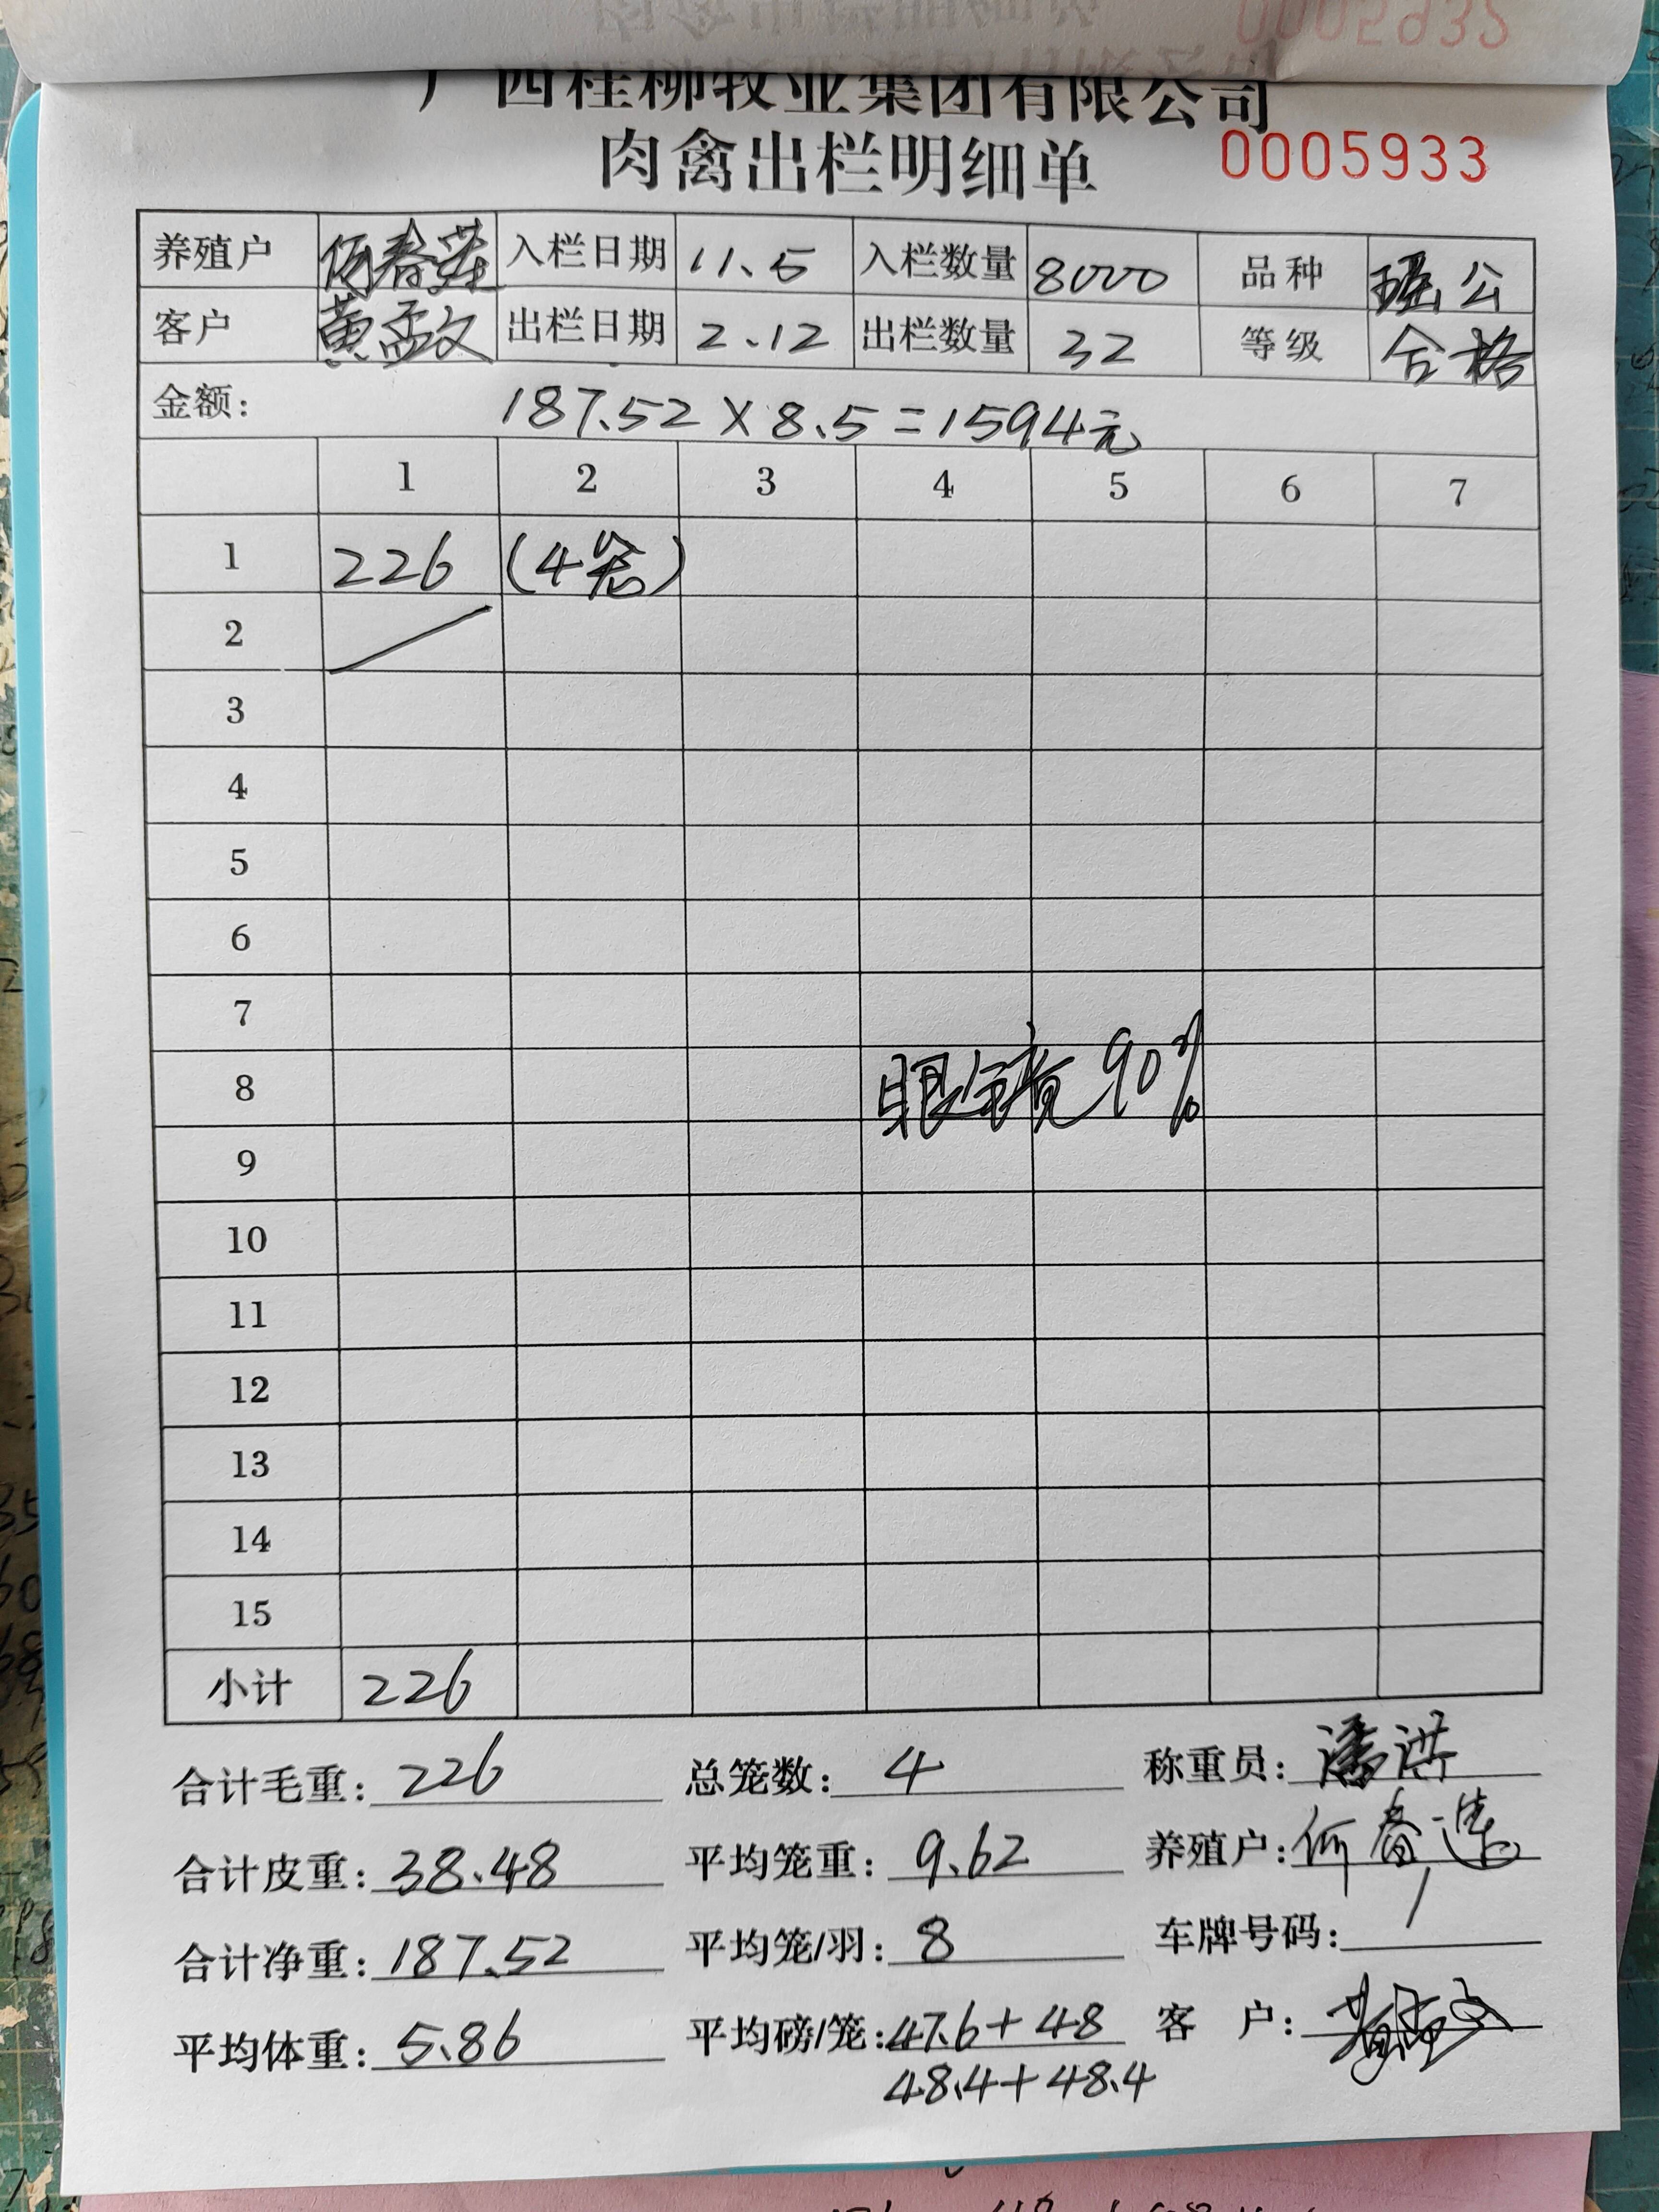 广西桂柳牧业集团有限公司
肉禽出栏明细单 0005933
养殖户 何春莲 入栏日期 11.5 入栏数量 8000 品种 瑶公
客户 黄孟文 出栏日期 2.12 出栏数量 32 等级 合格
金额: 187.52×8.5=1594元
1 2 3 4 5 6 7
1 226 (4笼)
2
3
4
5
6
7
8 眼镜90%
9
10
11
12
13
14
15
小计 226
合计毛重: 226 总笼数: 4 称重员: 潘洪
合计皮重: 38.48 平均笼重: 9.62 养殖户: 何春莲
合计净重: 187.52 平均笼/羽: 8 车牌号码: /
平均体重: 5.86 平均磅/笼: 47.6+48 客 户: 黄孟文
48.4+48.4